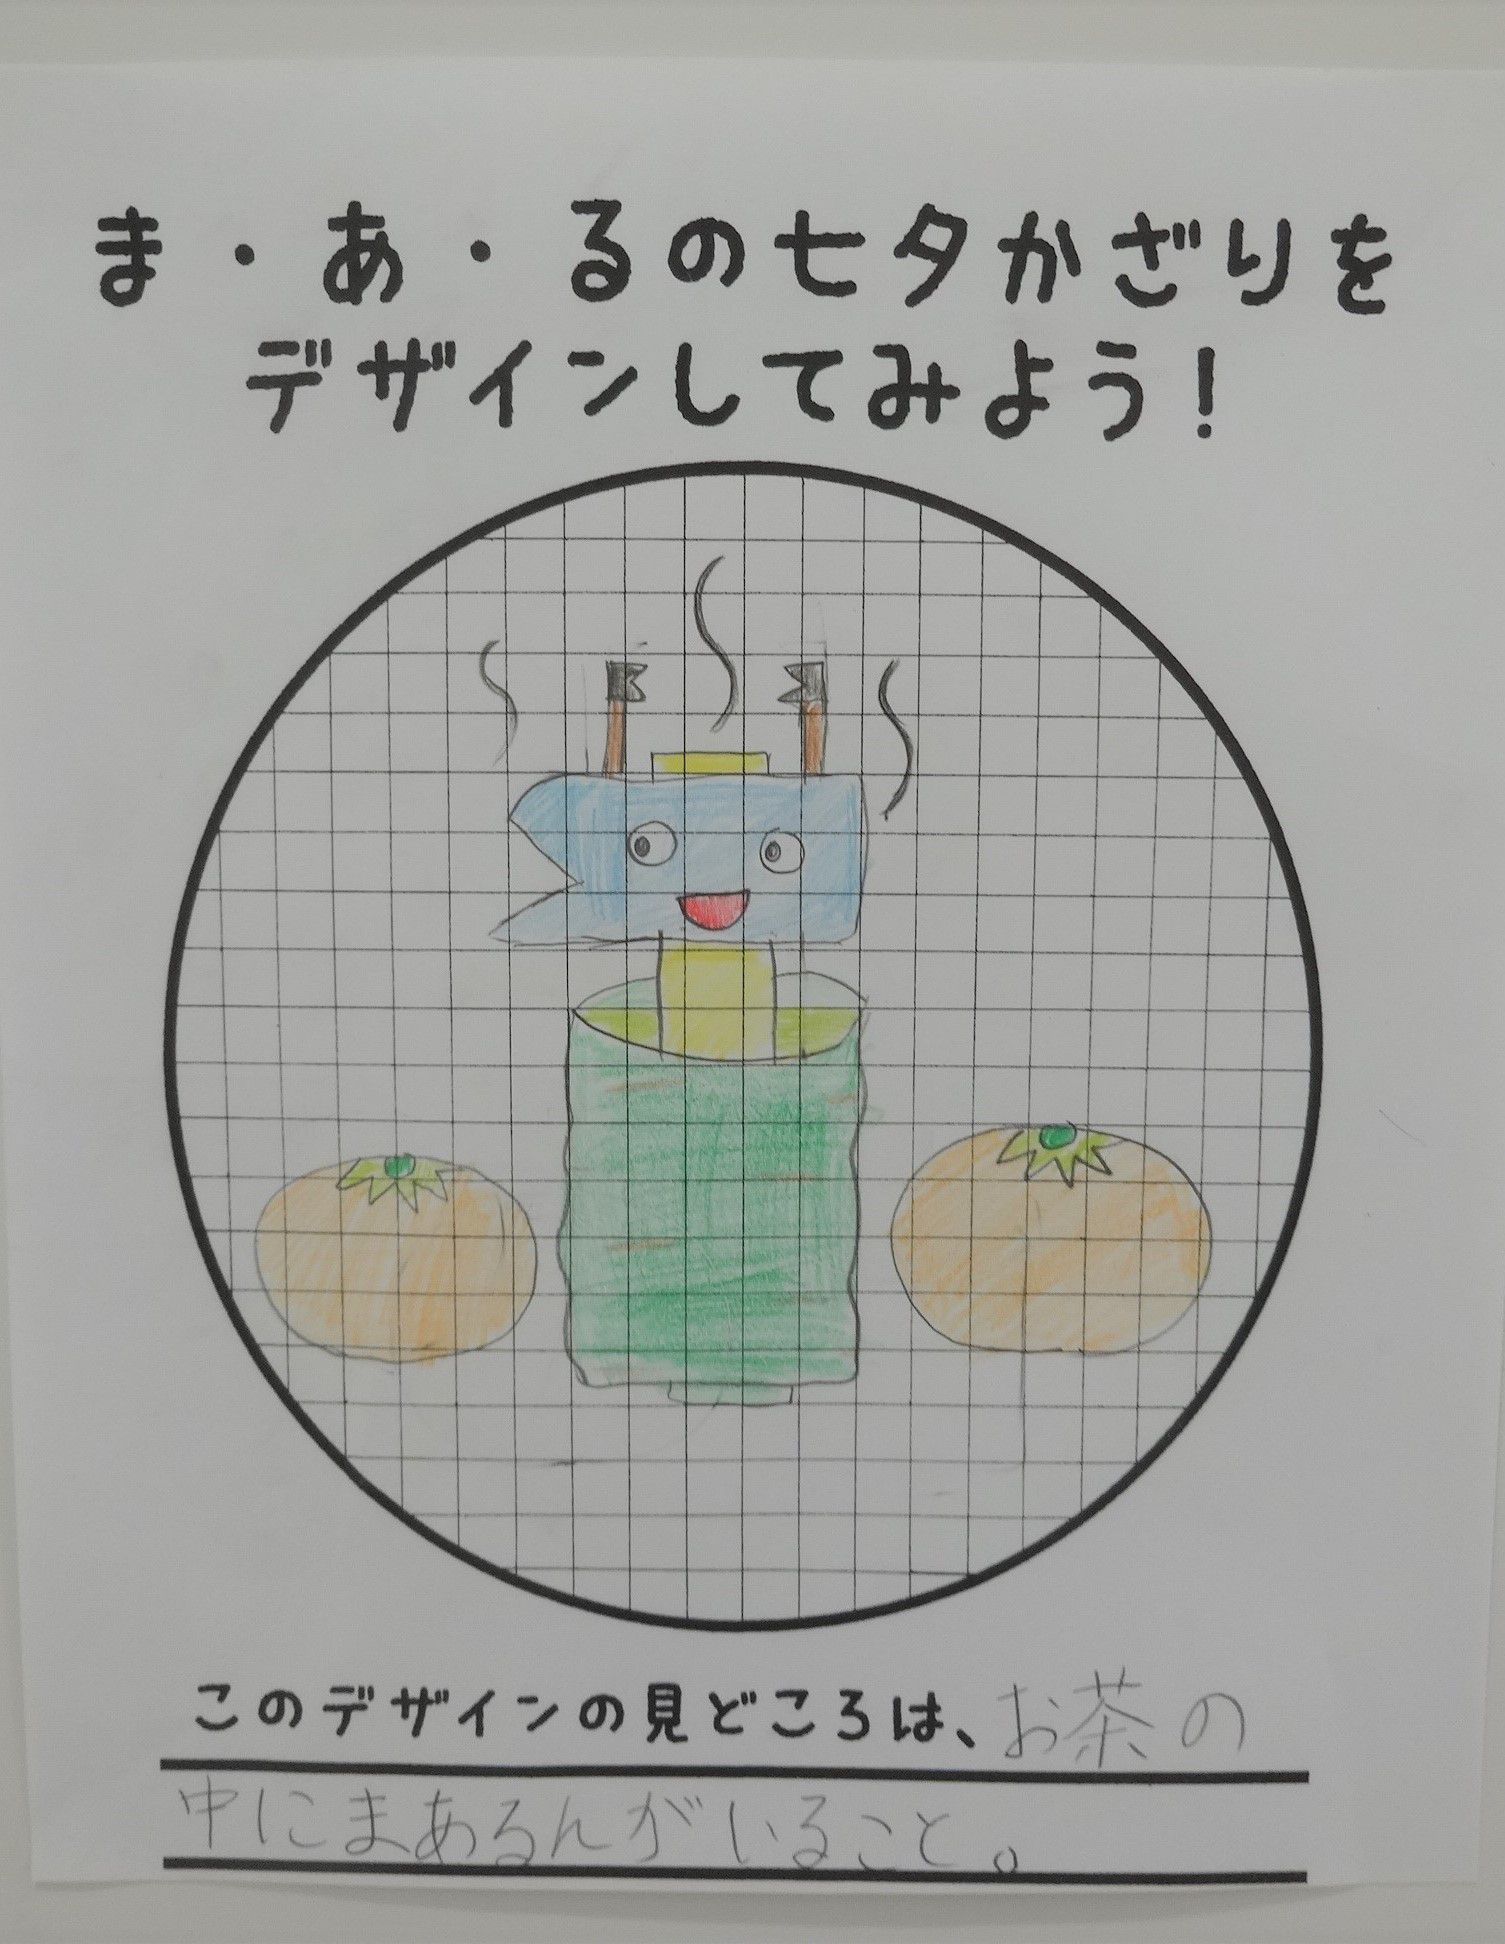 ま・あ・るの七夕かざりを
デザインしてみよう!
このデザインの見どころは、お茶の
中にまあるんがいること。